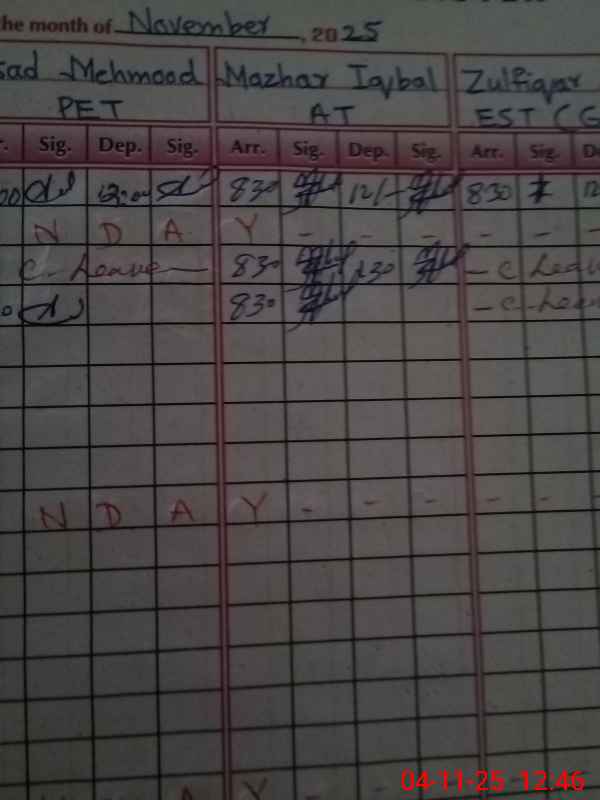 the month of November, 2025
sad Mehmood Mazhar Iqbal Zulfiqar
PET AT EST (G
r. Sig. Dep. Sig. Arr. Sig. Dep. Sig. Arr. Sig. D
00 830 12/- 830 12
N D A Y - - - - - -
C. Leave — 830 1230 - C Leav
0 830 - C - Leave
N D A Y - - - - -
A Y
04-11-25 12:46